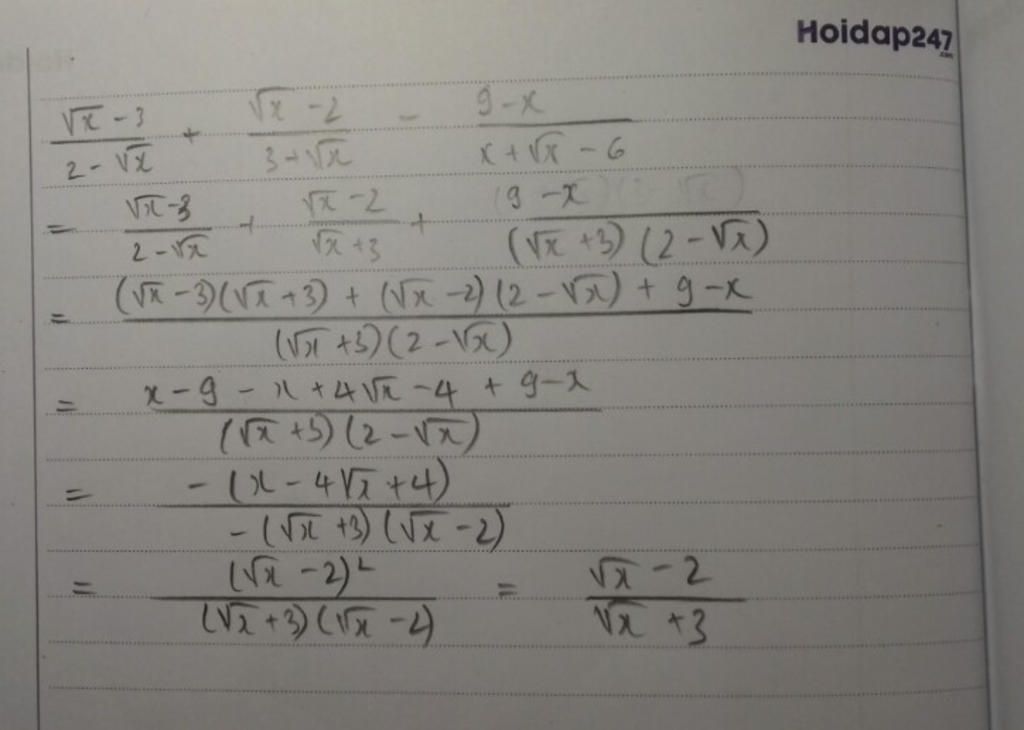 Hoidap247
.com
(√x - 3)/(2 - √x) + (√x - 2)/(3 + √x) - (9 - x)/(x + √x - 6)
= (√x - 3)/(2 - √x) + (√x - 2)/(√x + 3) + (9 - x)/((√x + 3)(2 - √x))
= ((√x - 3)(√x + 3) + (√x - 2)(2 - √x) + 9 - x)/((√x + 3)(2 - √x))
= (x - 9 - x + 4√x - 4 + 9 - x)/((√x + 3)(2 - √x))
= (-(x - 4√x + 4))/(-(√x + 3)(√x - 2))
= ((√x - 2)²)/((√x + 3)(√x - 2)) = (√x - 2)/(√x + 3)